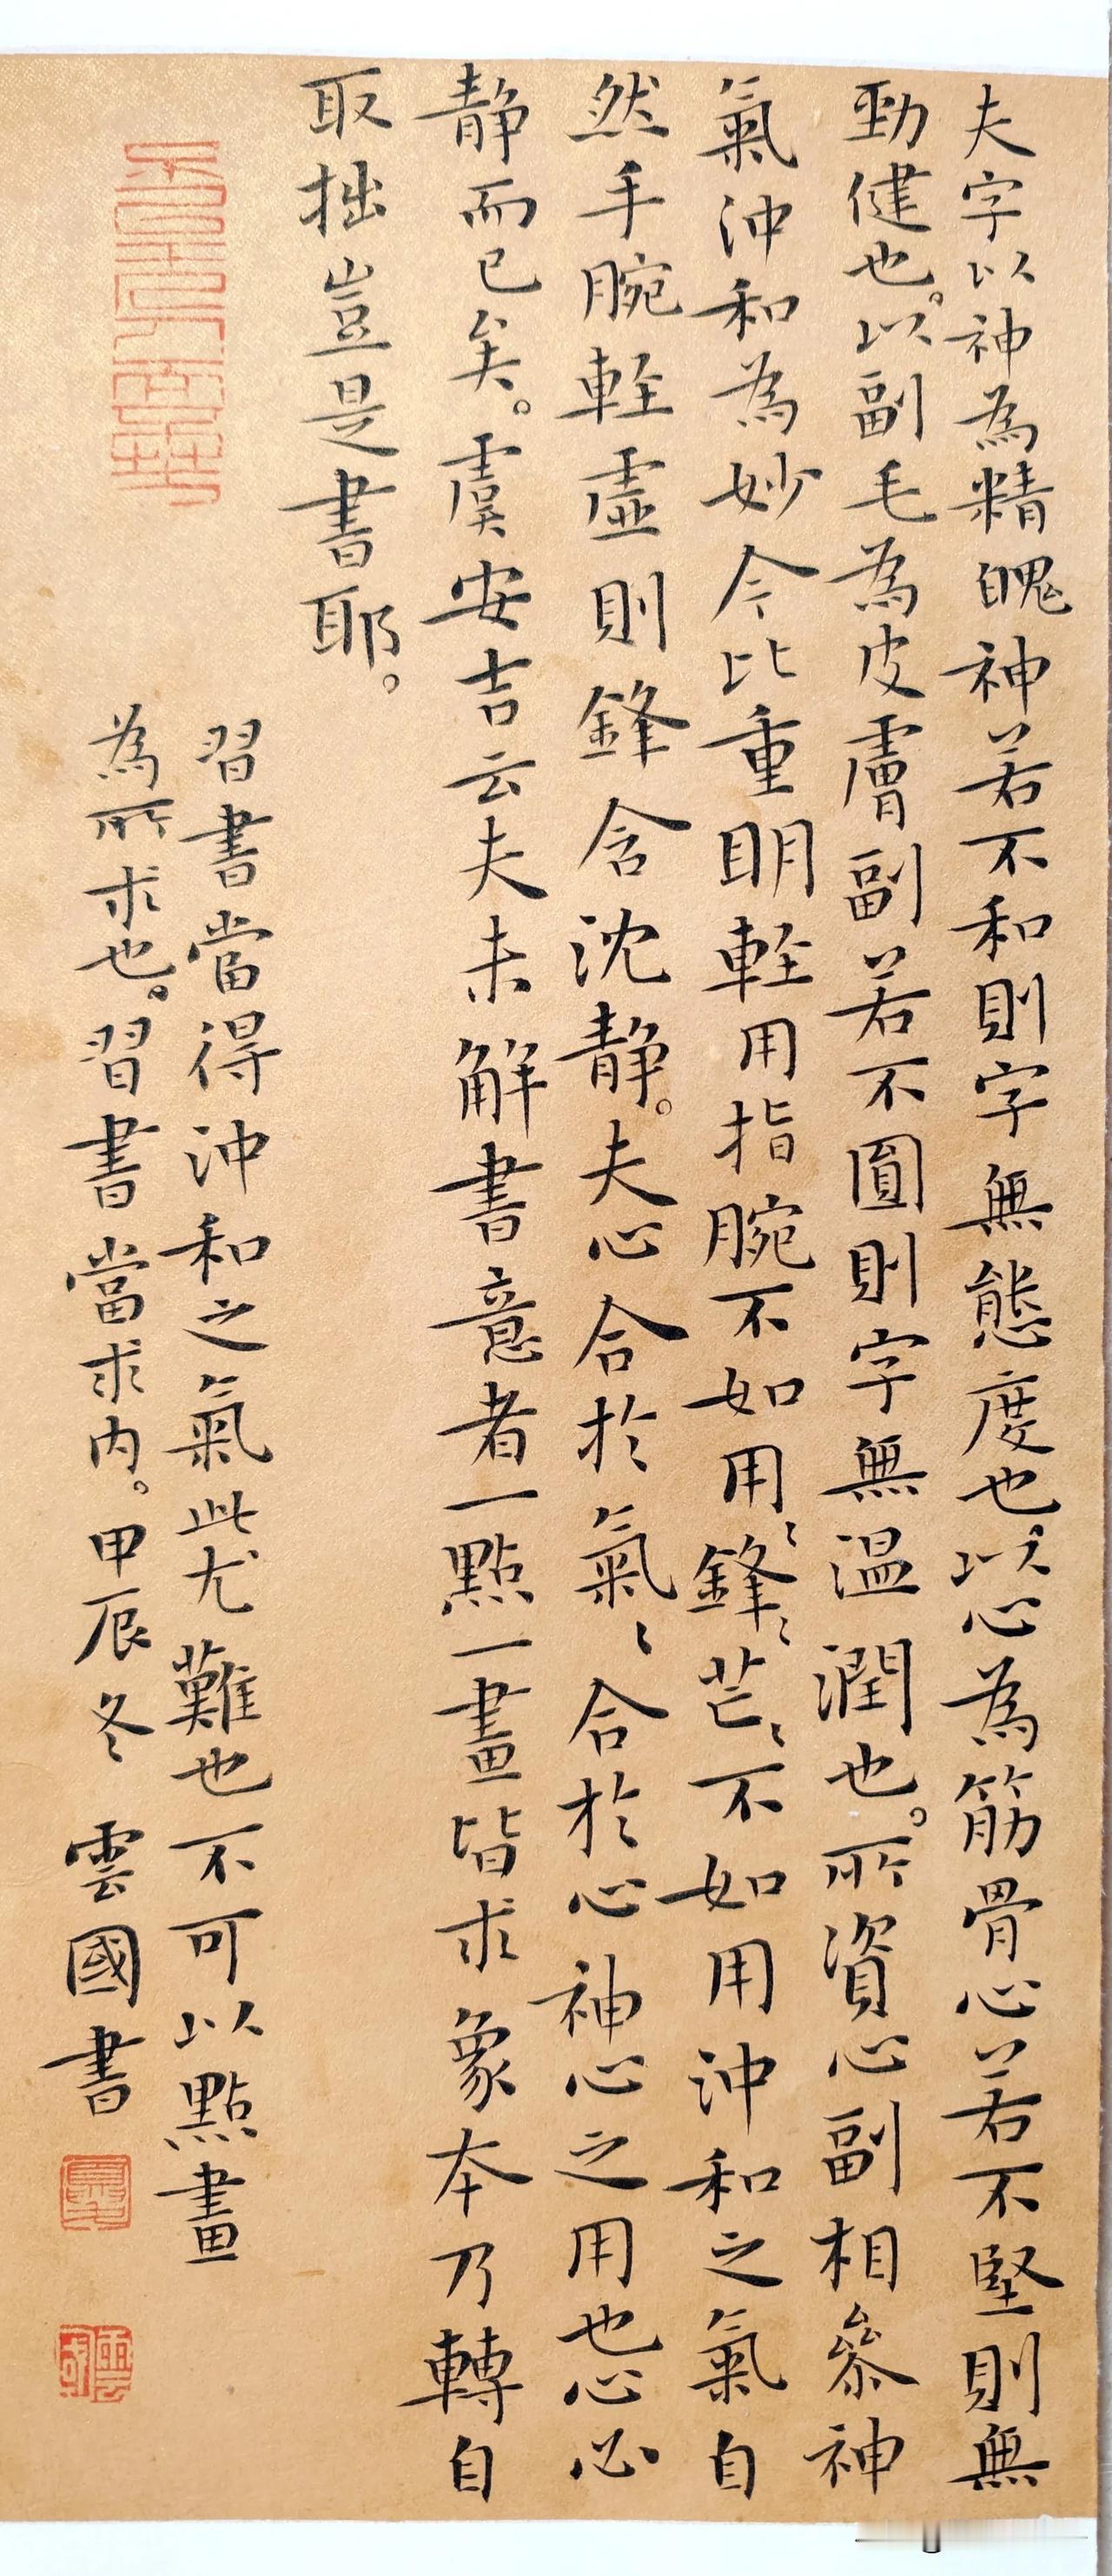 夫字以神為精魄神若不和則字無態度也。以心為筋骨心若不堅則無
勁健也。以副毛為皮膚副若不圓則字無温潤也。所資心副相參神
氣沖和為妙今比重明輕用指腕不如用〻鋒〻芒〻不如用沖和之氣自
然手腕輕虛則鋒含沈静。夫心合於氣〻合於心神心之用也心必
静而已矣。虞安吉云夫未解書意者一點一畫皆求象本乃轉自
取拙豈是書耶。
習書當得沖和之氣此尤難也不可以點畫
為所求也。習書當求内。甲辰冬 雲國書